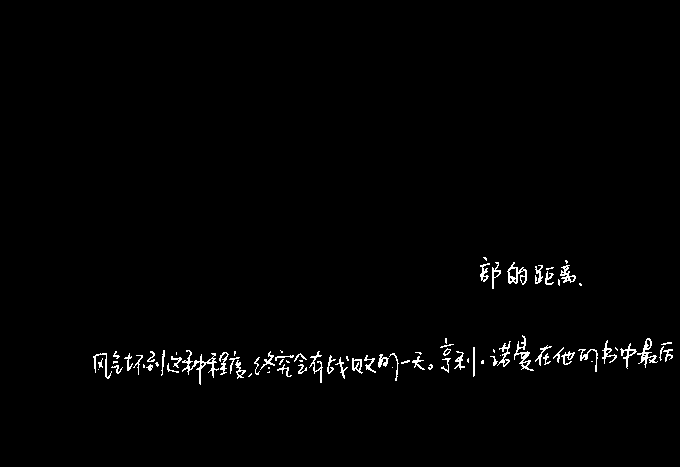 部的距离、
风气坏到这种程度,终究会有战败的一天。亨利·诺曼在他的书中最后